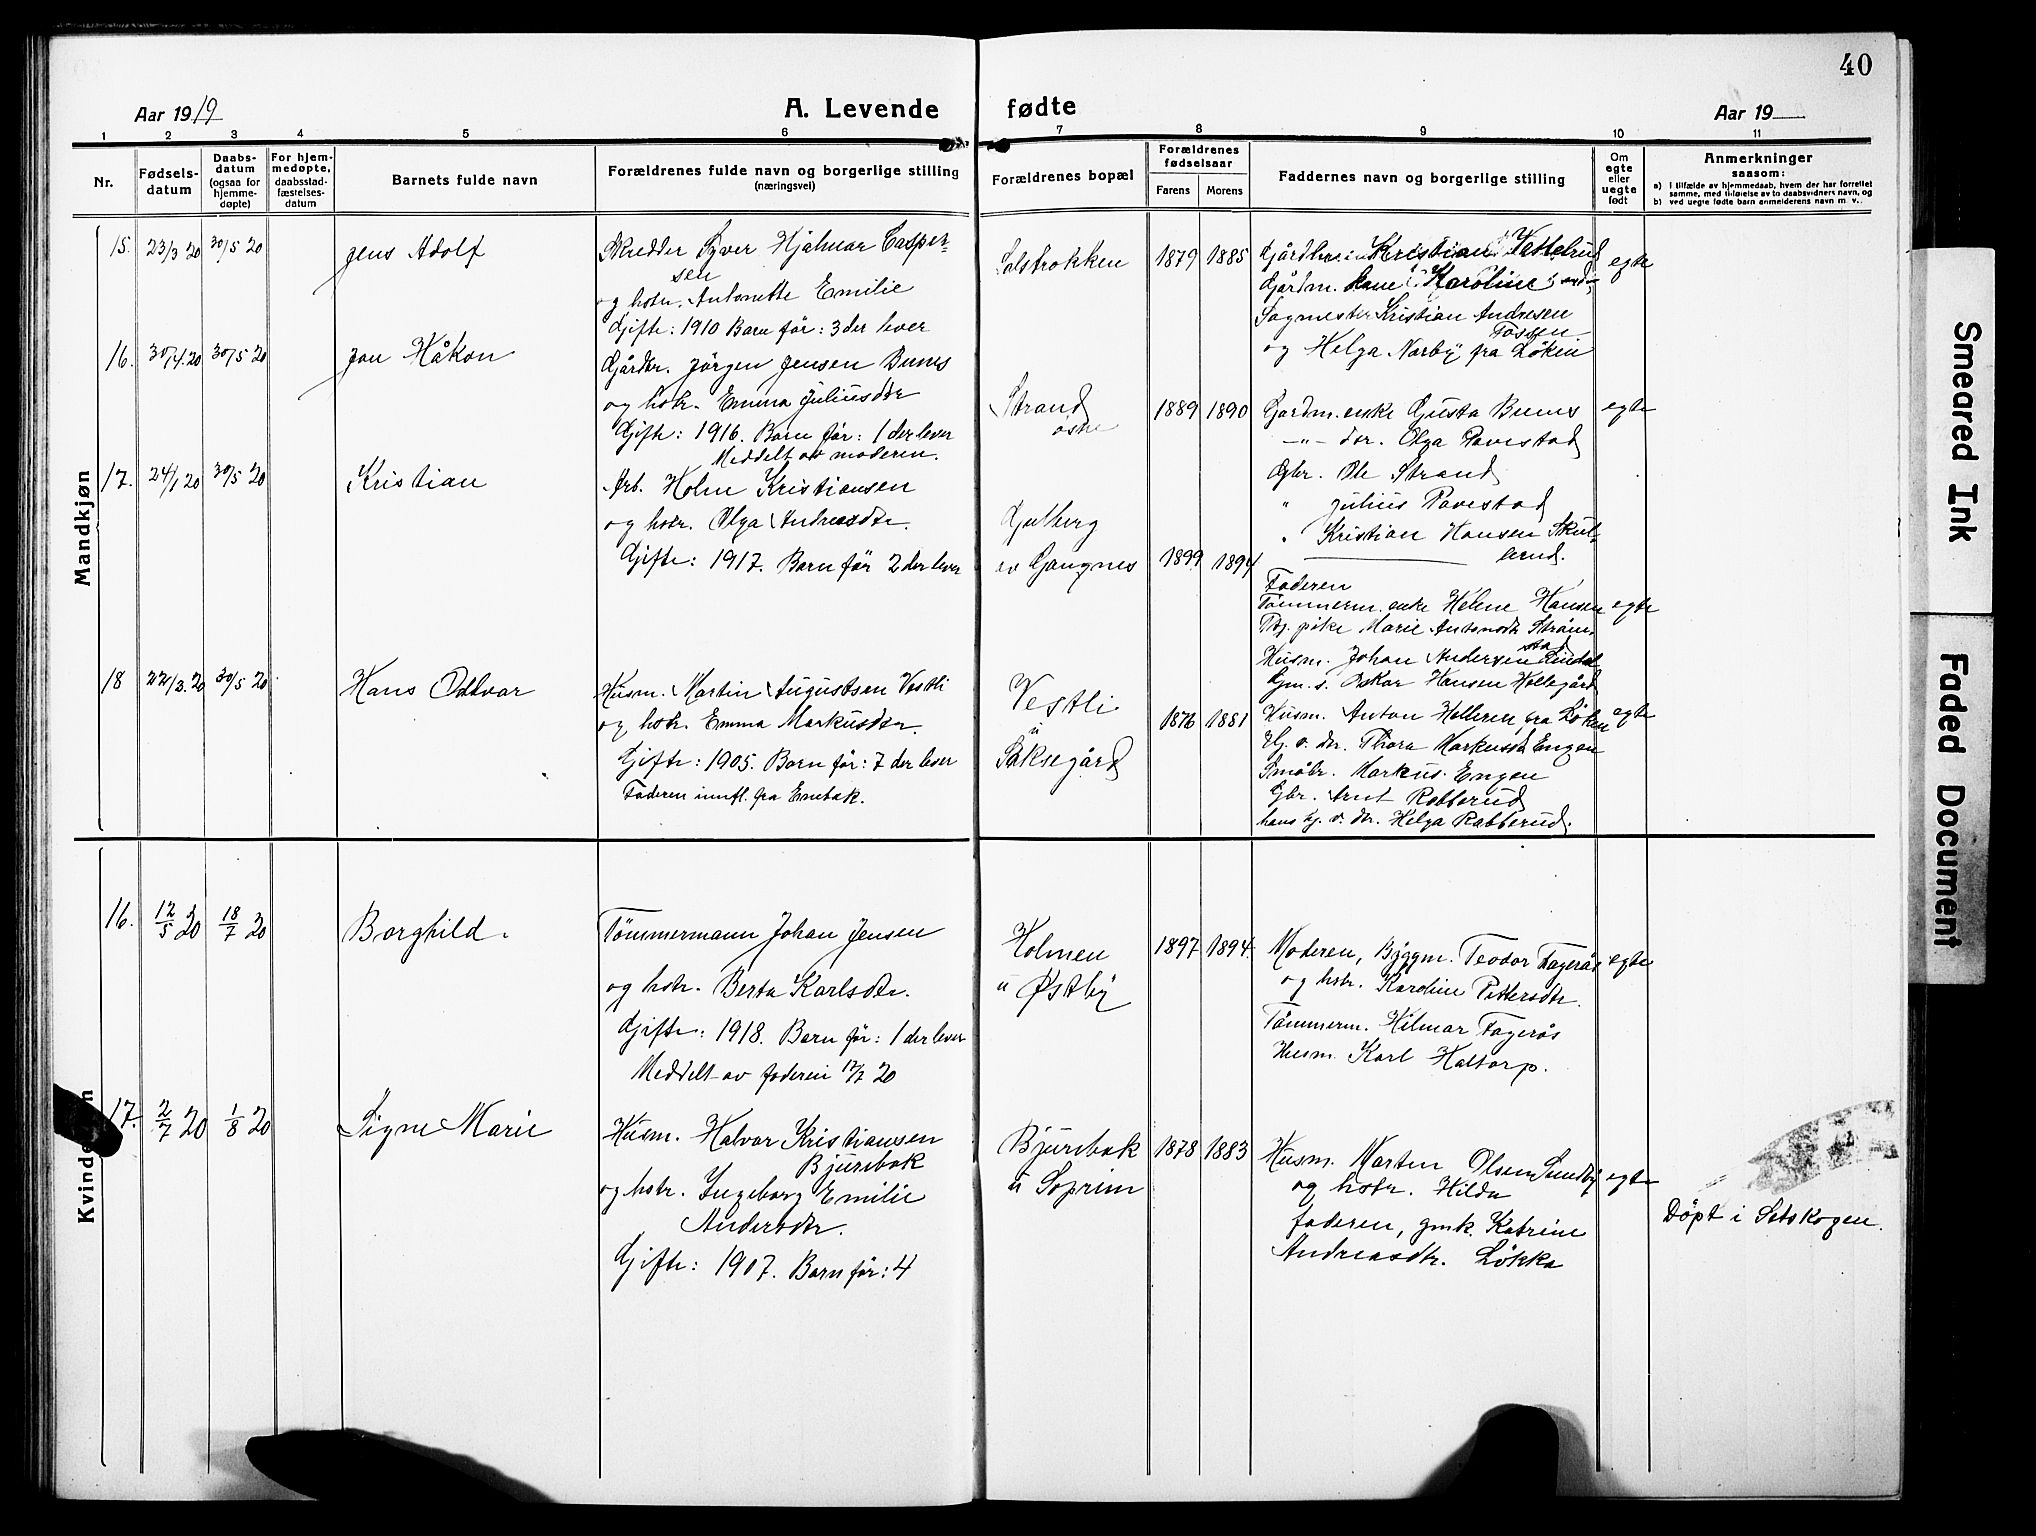 40
Aar 1919
A. Levende fødte
Aar 19
1 2 3 4 5 6 7 8 9 10 11
Nr.
Fødsels-
datum
Daabs-
datum
(ogsaa for
hjemme-
døpte)
For hjem-
medøpte,
daabsstad-
fæstelses-
datum
Barnets fulde navn
Forældrenes fulde navn og borgerlige stilling
(næringsvei)
Forældrenes bopæl
Forældrenes
fødselsaar
Farens Morens
Faddernes navn og borgerlige stilling
Om
egte
eller
uegte
født
Anmerkninger
saasom:
a) i tilfælde av hjemmedaab, hvem der har forrettet
samme, med tilføielse av to daabsvidners navn, og
b) ved uegte fødte barn anmelderens navn m. v.
Mandkjøn
15. 23/3 20 30/5 20
Jens Adolf
Skredder Syver Hjalmar Casper-
sen
og hstr. Antonette Emilie
Gifte: 1910 Barn før: 3 der lever
Solstrokken
1879 1885
Kristian Vestelrud
Gårdm. kone Karoline
Sagmester Kristian Andresen
Fossen
og Helga Narby fra Løken
egte
16. 30/4 20 30/5 20
Jon Håkon
Gårdbr. Jørgen Jensen Bunes
og hstr. Emma Juliusdtr
Gifte: 1916. Barn før: 1 der lever
Meddelt av moderen.
Strand
østre
1889 1890
Gardm. enke Gusta Bunes
-"- dtr. Olga Tavestad
Gbr. Ole Strand
" Julius Tavestad
" Kristian Hansen Skul-
lerud.
egte
17. 24/1 20 30/5 20
Kristian
Arb. Holm Kristiansen
og hstr. Olga Andreasdtr.
Gifte: 1917. Barn før 2 der lever
Gulberg
av Gangnes
1899 1894
Faderen
Tømmerm. enke Helene Hansen
Tbj. pike Marie Antonsdtr Strøm-
stad
Husm. Johan Andersen Lindal
Gm. s. Oskar Hansen Hellegård
egte
18 22/3. 20 30/5 20
Hans Oddvar
Husm. Martin Augustsen Vestli
og hstr. Emma Markusdtr.
Gifte: 1905. Barn før: 7 der lever
Faderen innfl. fra Enebak.
Vestli
u
Saksegård
1876 1881
Husm. Anton Holleren fra Løken
Hj. v. dtr. Thora Markusd Engen
Småbr. Markus Engen
Gbr. Arnt Rabberud
hans hj. v. dtr. Helga Rabberud.
egte
Kvindekjøn
16. 12/5 20 18/7 20
Borghild.
Tømmermann Johan Jensen
og hstr. Berta Karlsdtr.
Gifte: 1918. Barn før: 1 der lever
Meddelt av faderen 17/7 20
Holmen
u Østby
1897 1894.
Moderen, Byggm. Teodor Fagerås
og hstr. Karoline Pettersdtr.
Tømmerm. Hilmar Fagerås
Husm. Karl Haltorp.
egte
17. 2/7 20 1/8 20
Signe Marie
Husm. Halvor Kristiansen
Bjurebæk
og hstr. Ingeborg Emilie
Andersdtr.
Gifte: 1907. Barn før: 4
Bjurebæk
u Soprim
1878 1883
Husm. Marten Olsen Sundby
og hstr. Hilda
faderen, gmk. Katrine
Andreasdtr. Løkka
egte
Døpt i Setskogen.
Smeared Ink
Faded Document